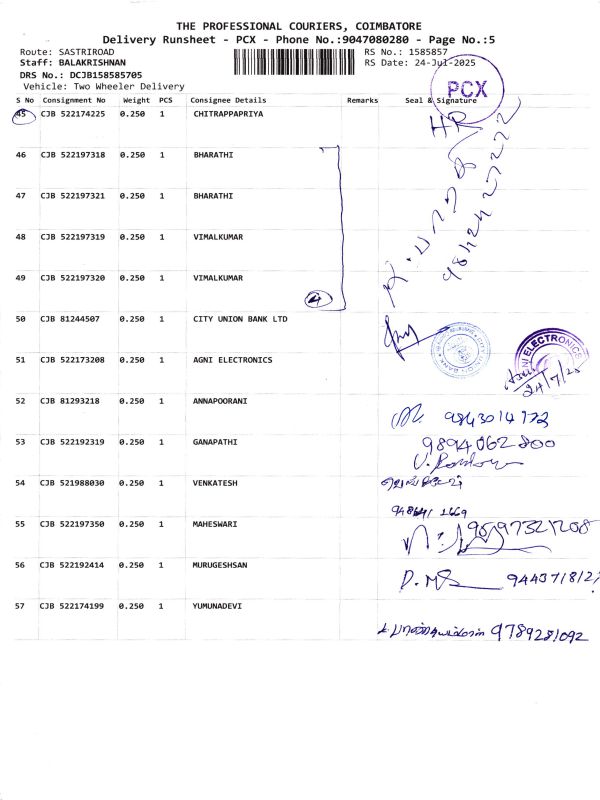 THE PROFESSIONAL COURIERS, COIMBATORE
Delivery Runsheet - PCX - Phone No.:9047080280 - Page No.:5
Route: SASTRIROAD RS No.: 1585857
Staff: BALAKRISHNAN RS Date: 24-Jul-2025
DRS No.: DCJB158585705
Vehicle: Two Wheeler Delivery
PCX
S No Consignment No Weight PCS Consignee Details Remarks Seal & Signature
45 CJB 522174225 0.250 1 CHITRAPPAPRIYA HR
46 CJB 522197318 0.250 1 BHARATHI
47 CJB 522197321 0.250 1 BHARATHI
48 CJB 522197319 0.250 1 VIMALKUMAR
49 CJB 522197320 0.250 1 VIMALKUMAR
4
50 CJB 81244507 0.250 1 CITY UNION BANK LTD
CITY UNION BANK
51 CJB 522173208 0.250 1 AGNI ELECTRONICS
ELECTRONICS
24/7/25
52 CJB 81293218 0.250 1 ANNAPOORANI
9843014172
53 CJB 522192319 0.250 1 GANAPATHI 9894062800
54 CJB 521988030 0.250 1 VENKATESH
55 CJB 522197350 0.250 1 MAHESWARI 9597321208
56 CJB 522192414 0.250 1 MURUGESHSAN
57 CJB 522174199 0.250 1 YUMUNADEVI
9789281092